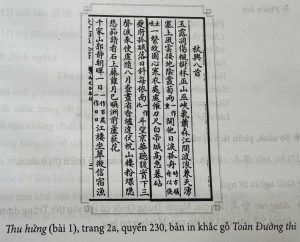 秋興八首
玉露凋傷楓樹林巫山巫峽氣蕭森江間波浪兼天湧
塞上風雲接地陰叢菊兩開他日淚孤舟
一繫故園心寒衣處處催刀尺白帝城高急暮砧
夔府孤城落日斜每依南斗望京華聽猨實下三
聲淚奉使虛隨八月查畫省香爐違伏枕山樓粉堞隱
悲笳請看石上藤蘿月已映洲前蘆荻花
千家山郭靜朝暉一日江樓坐翠微信宿漁
Thu hứng (bài 1), trang 2a, quyển 230, bản in khắc gỗ Toàn Đường thi